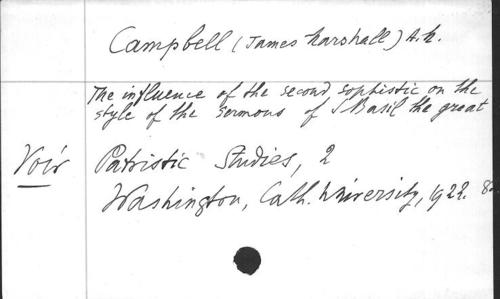 Campbell (James Marshall) A.M.
The influence of the second sophistic on the
style of the sermons of S Basil the great
Voir Patristic Studies, 2
Washington, Cath. University, 1922. 8º